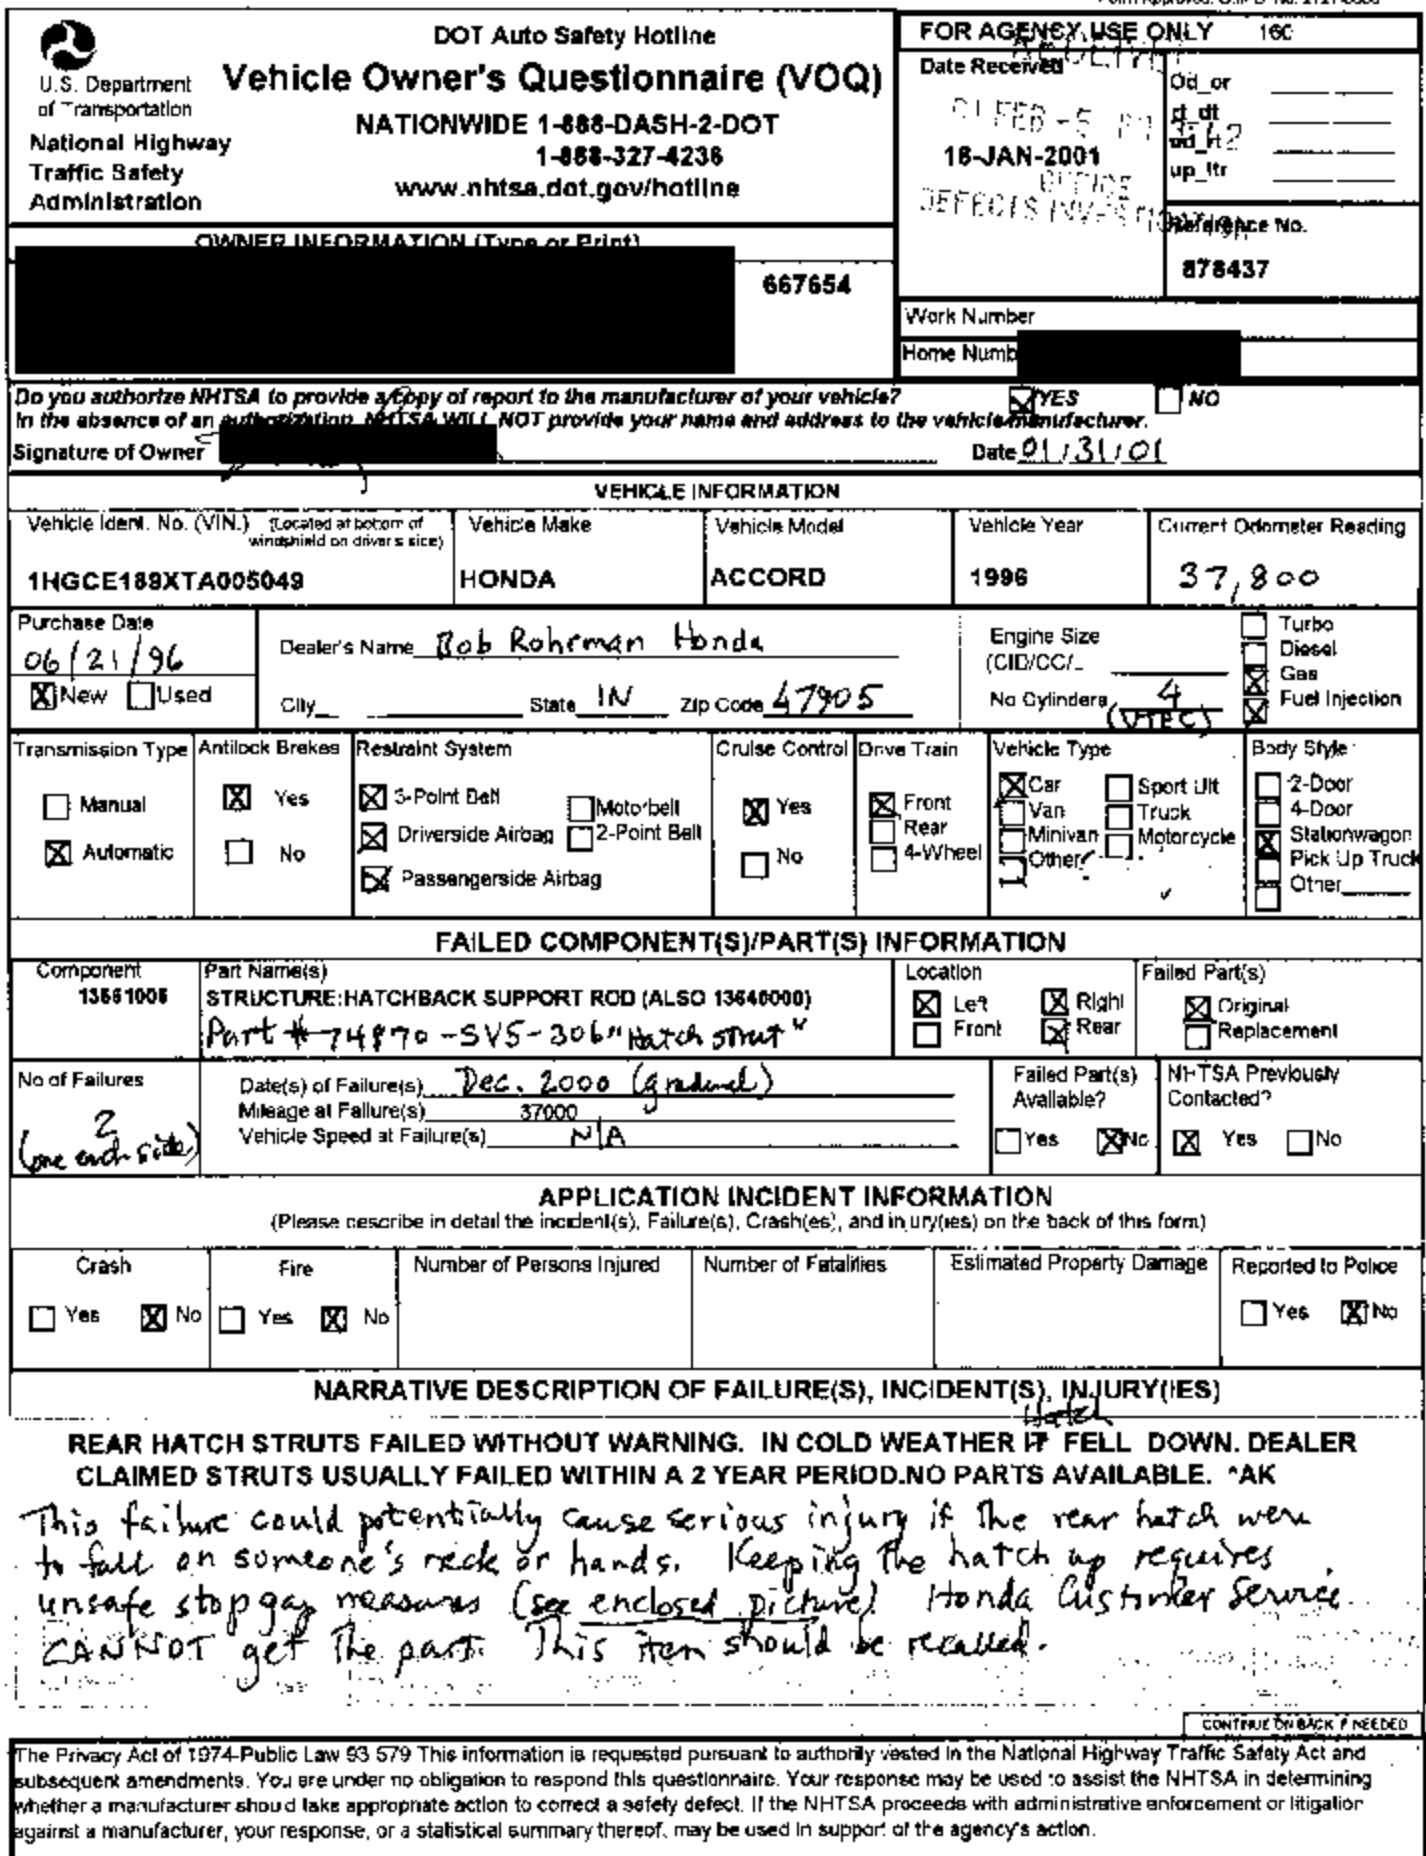 DOT Auto Safety Hotline
Vehicle Owner's Questionnaire (VOQ)
NATIONWIDE 1-888-DASH-2-DOT
1-888-327-4236
www.nhtsa.dot.gov/hotline
U.S. Department
of Transportation
National Highway
Traffic Safety
Administration
FOR AGENCY USE ONLY 160
Date Received
FEB -5
18-JAN-2001
OFFICE
DEFECTS INVESTIGATION
Od_or
rt_dt
od_rt
up_ltr
Reference No.
878437
OWNER INFORMATION (Type or Print)
667654
Work Number
Home Numb
Do you authorize NHTSA to provide a copy of report to the manufacturer of your vehicle? YES NO
In the absence of an authorization, NHTSA WILL NOT provide your name and address to the vehicle manufacturer.
Signature of Owner Date 01/31/01
VEHICLE INFORMATION
Vehicle Ident. No. (VIN.) (Located at bottom of
windshield on driver's side)
1HGCE189XTA005049
Vehicle Make
HONDA
Vehicle Model
ACCORD
Vehicle Year
1996
Current Odometer Reading
37,800
Purchase Date
06/21/96
New Used
Dealer's Name Bob Rohrman Honda
City State IN Zip Code 47905
Engine Size
(CID/CC/L
No Cylinders 4
(VTEC)
Turbo
Diesel
Gas
Fuel Injection
Transmission Type
Manual
Automatic
Antilock Brakes
Yes
No
Restraint System
3-Point Belt
Driverside Airbag
Passengerside Airbag
Motorbelt
2-Point Belt
Cruise Control
Yes
No
Drive Train
Front
Rear
4-Wheel
Vehicle Type
Car
Van
Minivan
Other
Sport Ult
Truck
Motorcycle
Body Style
2-Door
4-Door
Stationwagon
Pick Up Truck
Other
FAILED COMPONENT(S)/PART(S) INFORMATION
Component
Part Name(s)
STRUCTURE:HATCHBACK SUPPORT ROD (ALSO 13640000)
Part # 74870-SV5-306 "Hatch strut"
Location
Left Right
Front Rear
Failed Part(s)
Original
Replacement
No of Failures
2
(one each side)
Date(s) of Failure(s) Dec. 2000 (gradual)
Mileage at Failure(s) 37000
Vehicle Speed at Failure(s) N/A
Failed Part(s)
Available?
Yes No
NHTSA Previously
Contacted?
Yes No
APPLICATION INCIDENT INFORMATION
(Please describe in detail the incident(s), Failure(s), Crash(es), and injury(ies) on the back of this form)
Crash
Yes No
Fire
Yes No
Number of Persons Injured
Number of Fatalities
Estimated Property Damage
Reported to Police
Yes No
NARRATIVE DESCRIPTION OF FAILURE(S), INCIDENT(S), INJURY(IES)
Hatch
REAR HATCH STRUTS FAILED WITHOUT WARNING. IN COLD WEATHER IT FELL DOWN. DEALER
CLAIMED STRUTS USUALLY FAILED WITHIN A 2 YEAR PERIOD.NO PARTS AVAILABLE. *AK
This failure could potentially cause serious injury if the rear hatch were
to fall on someone's neck or hands. Keeping the hatch up requires
unsafe stop gap measures (see enclosed picture). Honda Customer Service
CANNOT get the part. This item should be recalled.
CONTINUE ON BACK IF NEEDED
The Privacy Act of 1974-Public Law 93 579 This information is requested pursuant to authority vested in the National Highway Traffic Safety Act and
subsequent amendments. You are under no obligation to respond this questionnaire. Your response may be used to assist the NHTSA in determining
whether a manufacturer should take appropriate action to correct a safety defect. If the NHTSA proceeds with administrative enforcement or litigation
against a manufacturer, your response, or a statistical summary thereof, may be used in support of the agency's action.